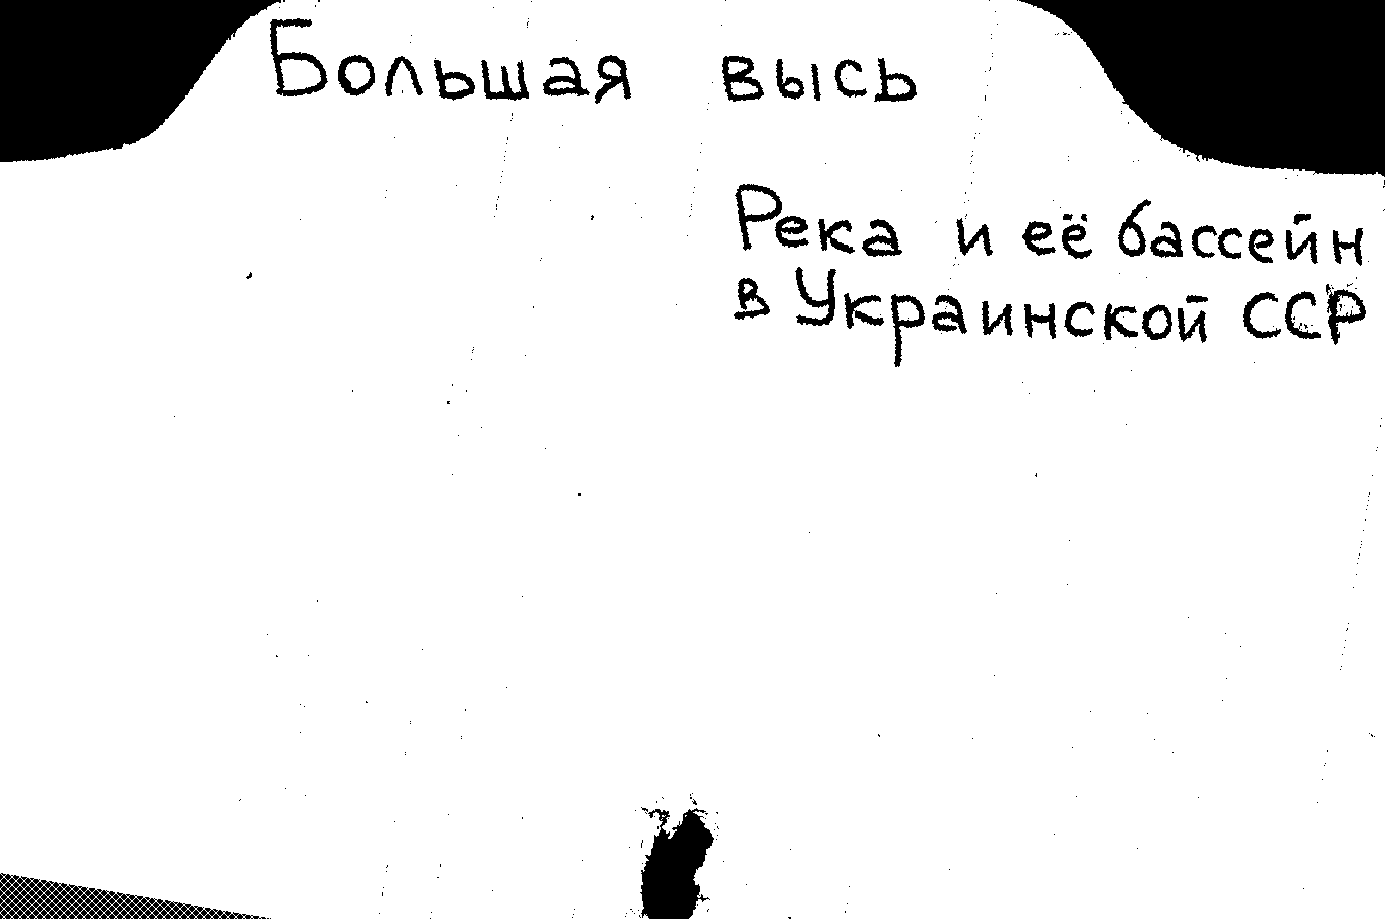 Большая высь
Река и её бассейн
в Украинской ССР